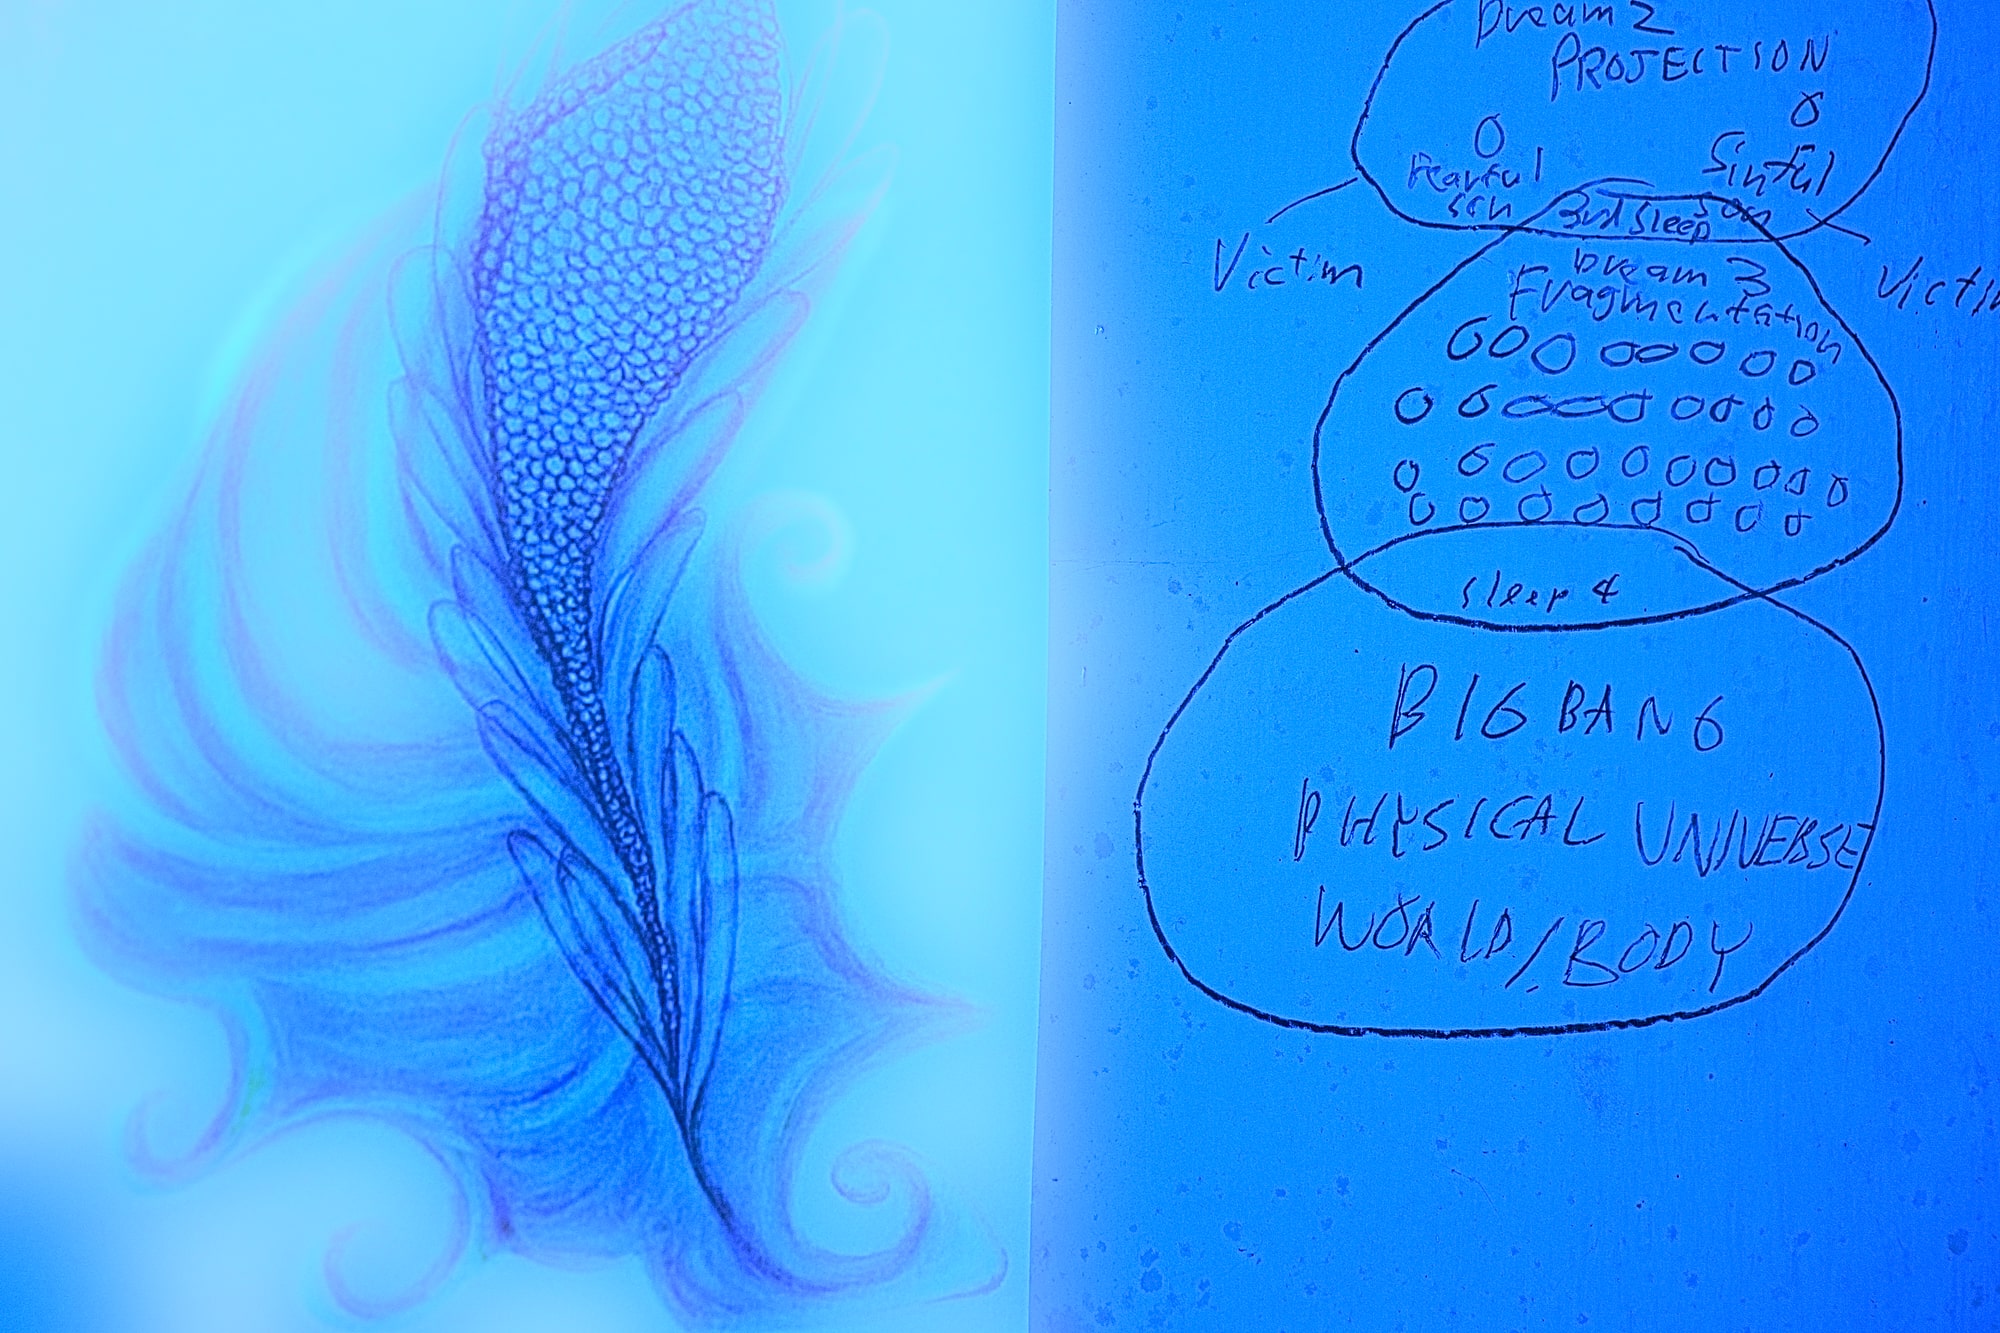 Dream 2
PROJECTION
Fearful
son
Sinful
son
Victim
Victim
3rd Sleep
Dream 3
Fragmentation
sleep 4
BIG BANG
PHYSICAL UNIVERSE
WORLD/BODY